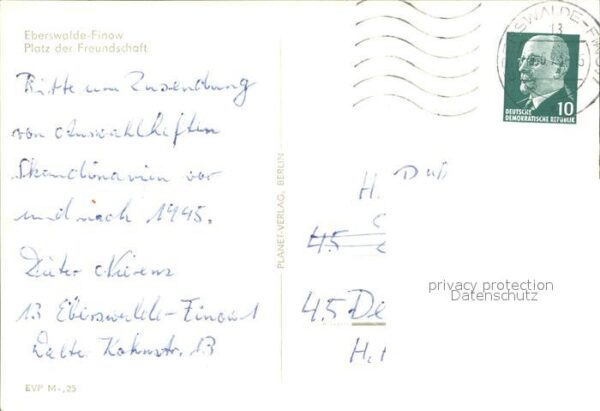 Eberswalde-Finow
Platz der Freundschaft
Bitte um Zusendung
von Auswahlheften
Skandinavien vor
und nach 1945.
Dieter
13 Eberswalde-Finow 1
13
EVP M -,25
PLANET-VERLAG, BERLIN
SWALDE-FINOW
13
10
DEUTSCHE
DEMOKRATISCHE REPUBLIK
H.
45
45 De
H.
privacy protection
Datenschutz